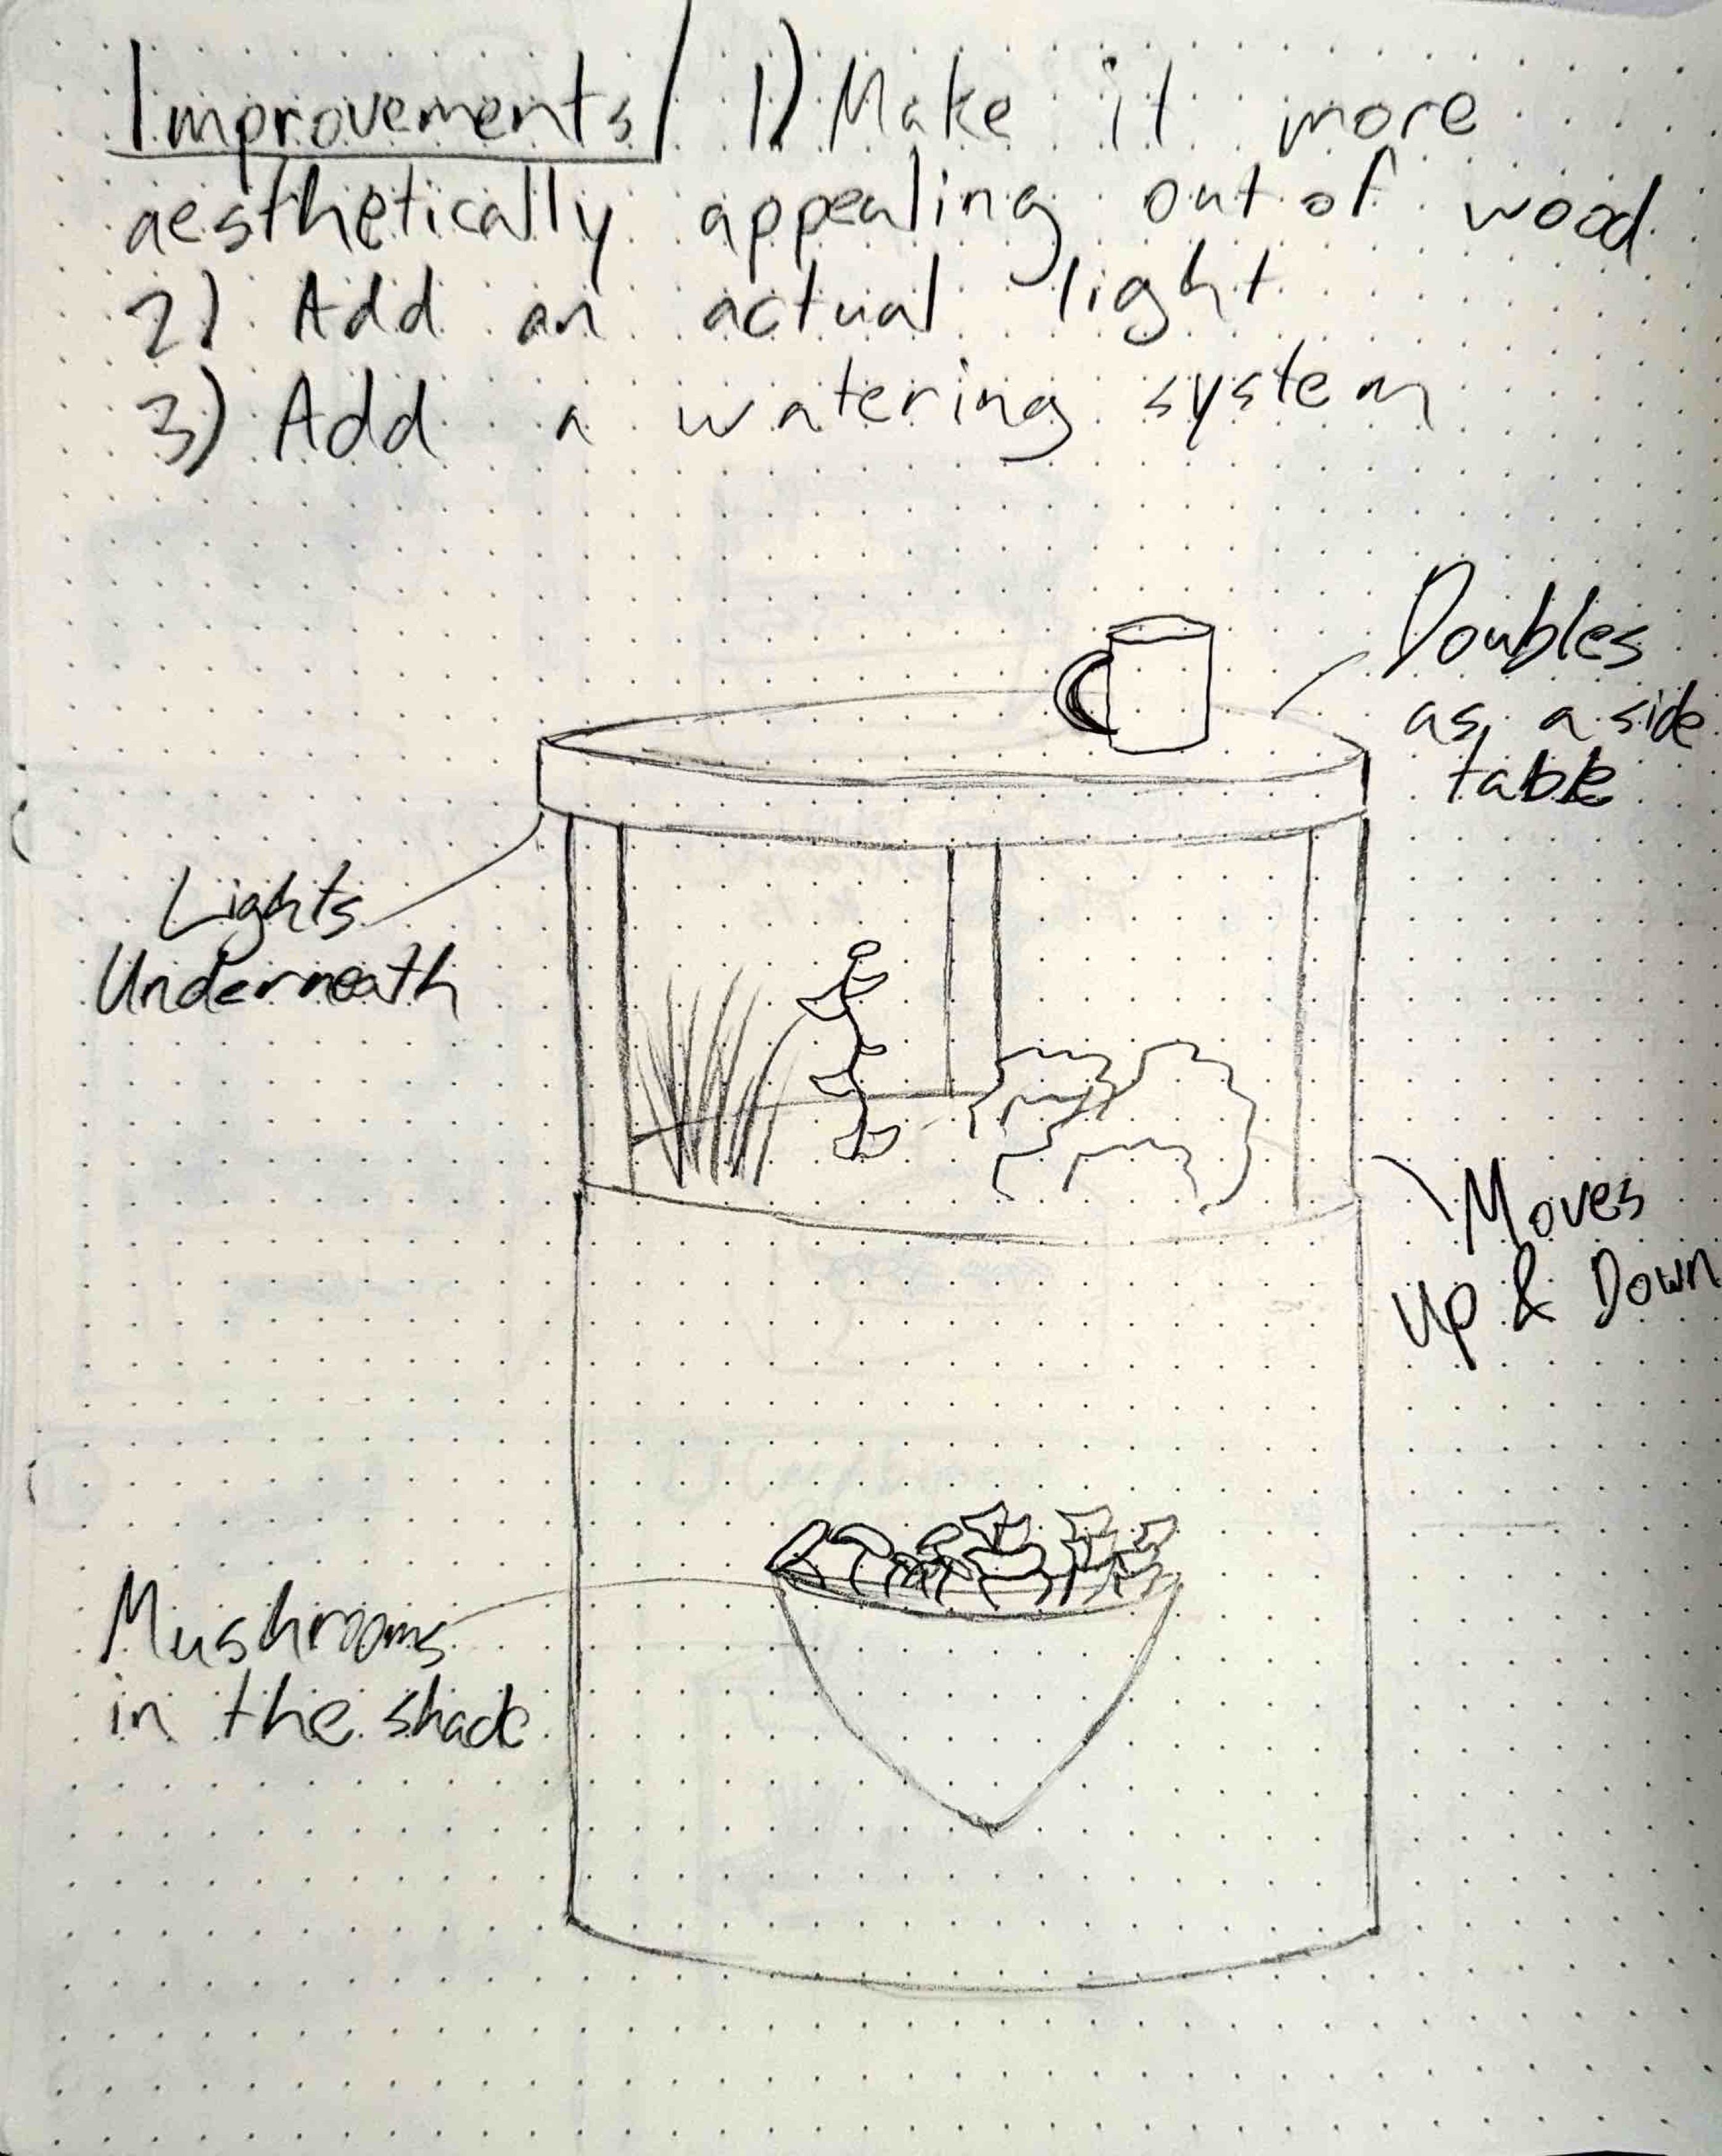 Improvements 1) Make it more
aesthetically appealing out of wood
2) Add an actual light
3) Add a watering system
Doubles
as a side
table
Lights
Underneath
Moves
Up & Down
Mushrooms
in the shade